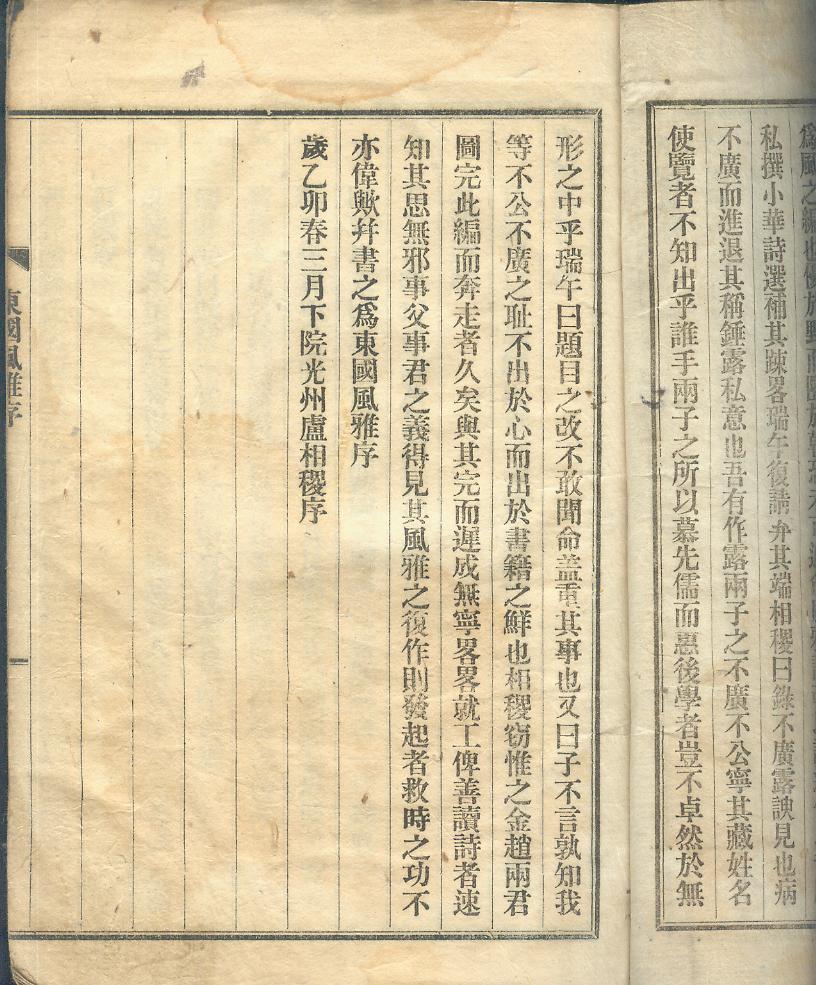 私撰小華詩選補其踈畧瑞午復請弁其端相稷曰錄不廣露諛見也病
不廣而進退其稱錘露私意也吾有作露兩子之不廣不公寧其藏姓名
使覽者不知出乎誰手兩子之所以慕先儒而惠後學者豈不卓然於無
形之中乎瑞午曰題目之改不敢聞命盖重其事也又曰子不言孰知我
等不公不廣之耻不出於心而出於書籍之鮮也相稷窃惟之金趙兩君
圖完此編而奔走者久矣與其完而遲成無寧畧畧就工俾善讀詩者速
知其思無邪事父事君之義得見其風雅之復作則發起者救時之功不
亦偉歟幷書之爲東國風雅序
歲乙卯春三月下院光州盧相稷序
東國風雅序